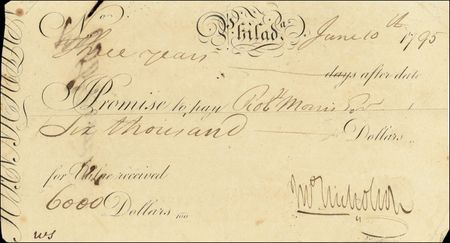 Philadª June 10th 1795
Three years days after date
Promise to pay Robt Morris Esqr
Six thousand Dollars
for Value received
6000 Dollars 100 Jnº Nicholson
ws